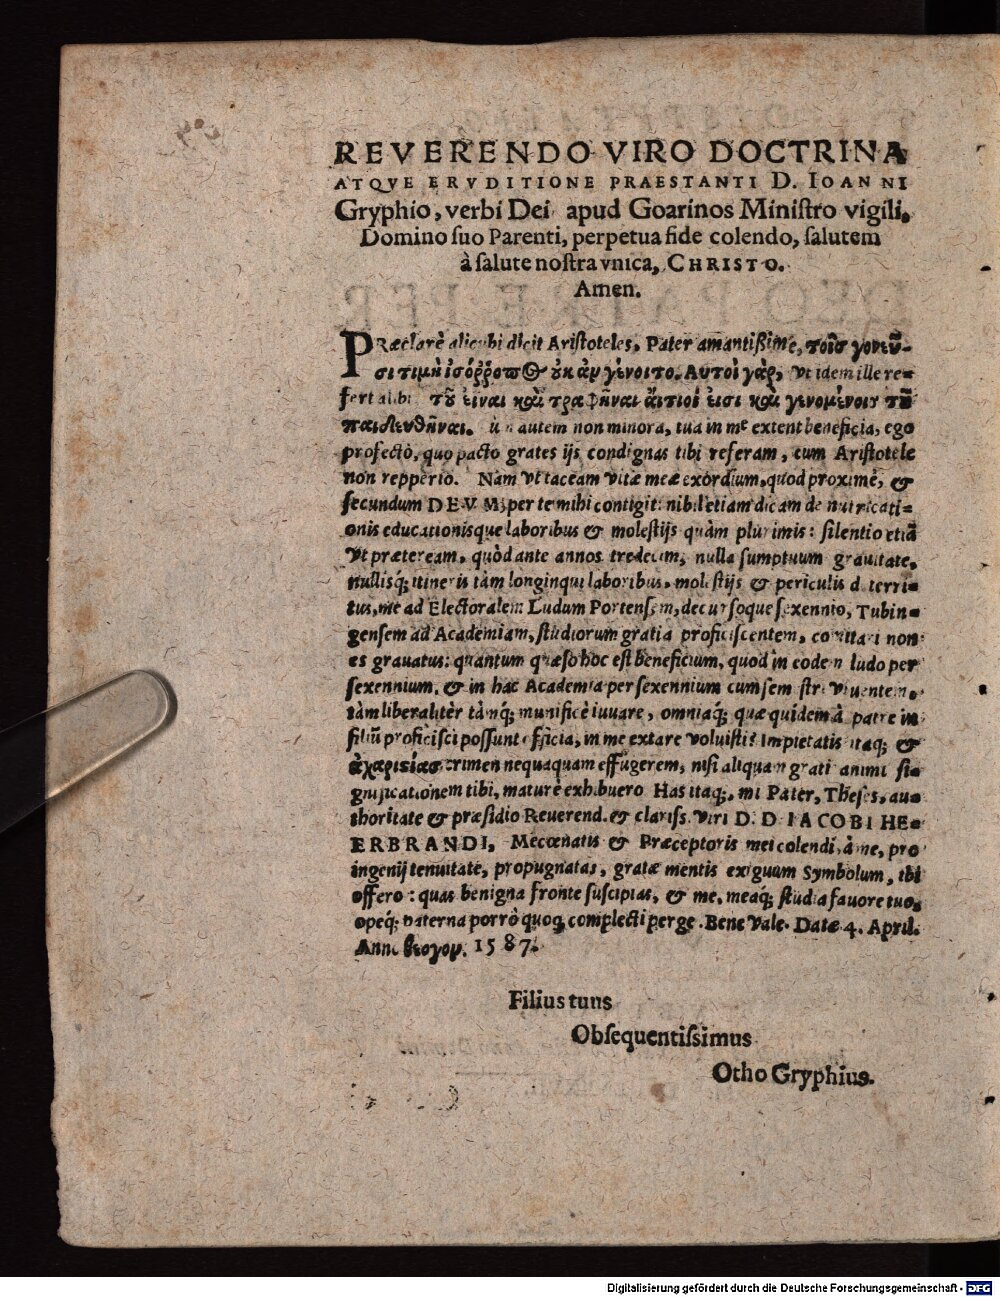 REVERENDO VIRO DOCTRINA
ATQVE ERVDITIONE PRAESTANTI D. IOANNI
Gryphio, verbi Dei apud Goarinos Miniſtro vigili,
Domino ſuo Parenti, perpetua fide colendo, ſalutem
à ſalute noſtra vnica, CHRISTO.
Amen.
PRæclarè alicubi dicit Ariſtoteles, Pater amantißime, τοῖσ γονεῦ-
σι τιμὴ ἰσόῤῥοπ@ ὀκ ἀν γένοιτο. Αυτοὶ γὰρ, vt idem ille re-
fert alibi τῦ εἶναι καὶ τραφῆναι ἄιτιοί εισι καὶ γενομένοις τῦ
παιδευθῆναι. autem non minora, tua in me extent beneficia, ego
profectò, quo pacto grates ijs condignas tibi referam, cum Ariſtotele
non repperio. Nam vt taceam vitæ meæ exordium, quod proximè, &
ſecundum DEVM, per te mihi contigit: nihil etiam dicam de nutricati-
onis educationisque laboribus & moleſtijs quàm plurimis: ſilentio etiã
vt præteream, quòd ante annos tredecim, nulla ſumptuum grauitate,
nullisq́; itineris tàm longinqui laboribus, moleſtijs & periculis deterri-
tus, me ad Electoralem Ludum Portenſem, decurſoque ſexennio, Tubin-
genſem ad Academiam, ſtudiorum gratia proficiſcentem, comitari non
es grauatus: quantum quæſo hoc eſt beneficium, quod in eodem ludo per
ſexennium, & in hac Academia per ſexennium cum ſem ſtri viuentem,
tàm liberalitèr tàmq́; munificè iuuare, omniaq́; quæ quidem à patre in
filiũ proficiſci poſſunt officia, in me extare voluiſti? Impietatis itaq; &
ἀχαριςίασ crimen nequaquam effugerem, niſi aliquam grati animi ſi-
gnificationem tibi, maturè exhibuero Has itaq;, mi Pater, Theſes, au-
thoritate & præſidio Reuerend. & clariſs. viri D. D IACOBI HE-
ERBRANDI, Mecœnatis & Præceptoris mei colendi, à me, pro
ingenij tenuitate, propugnatas, gratæ mentis exiguum Symbolum, tibi
offero: quas benigna fronte ſuſcipias, & me, meaq́; ſtudia fauore tuo,
opeq́; paterna porrò quoq; complecti perge. Bene vale. Datæ 4. April.
Anno θεογον. 1587.
Filius tuus
Obſequentiſsimus
Otho Gryphius.
Digitalisierung gefördert durch die Deutsche Forschungsgemeinschaft - DFG